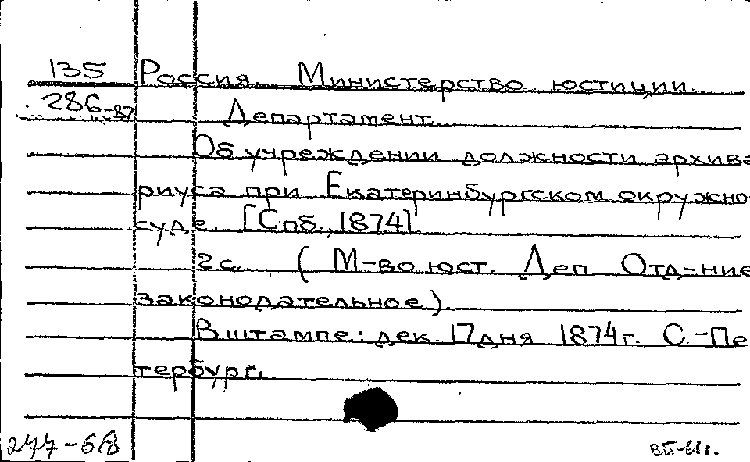 135 Россия. Министерство юстиции.
286-87 Департамент.
Об учреждении должности архива
риуса при Екатеринбургском окружно
суде. [Спб., 1874].
2с. (М-во юст. Деп. Отд-ние
законодательное).
В штампе: дек. 17 дня 1874г. С.-Пе
тербург.
247-68